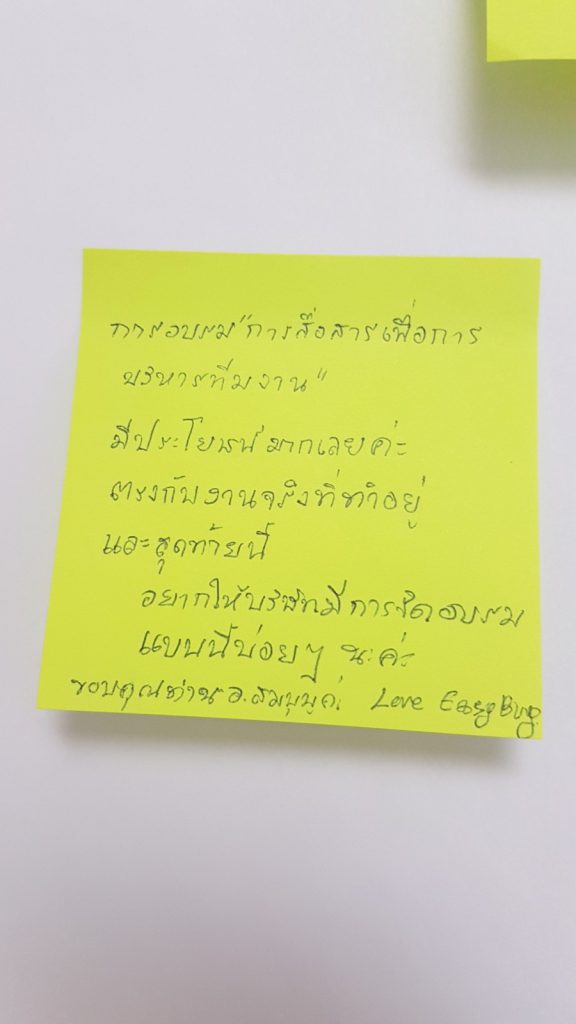 การอบรม "การสื่อสารเพื่อการ
บริหารทีมงาน"
มีประโยชน์มากเลยค่ะ
ตรงกับงานจริงที่ทำอยู่
และสุดท้ายนี้
อยากให้บริษัทมีการจัดอบรม
แบบนี้บ่อยๆ นะค่ะ
ขอบคุณท่าน อ. Love Easy Buy